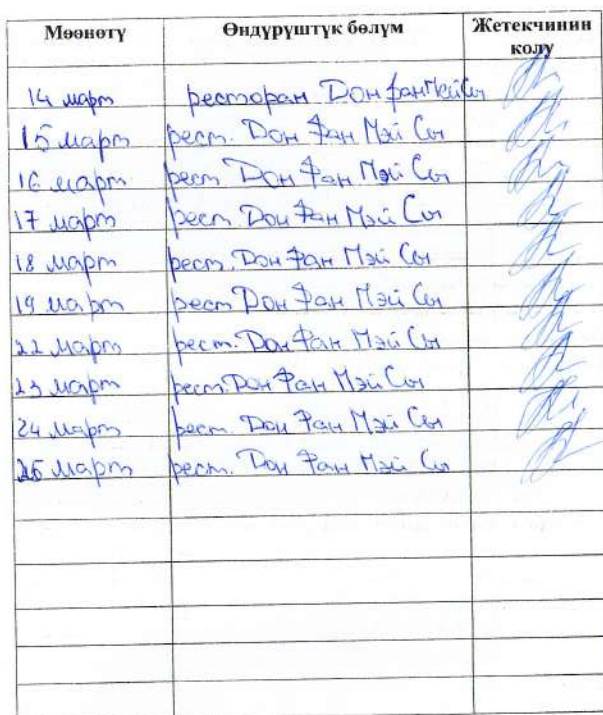 Мөөнөтү Өндүрүштүк бөлүм Жетекчинин колу
14 март ресторан Дон фан Мэй Сы
15 март рест. Дон Фан Мэй Сы
16 март рест. Дон Фан Мэй Сы
17 март рест. Дон Фан Мэй Сы
18 март рест. Дон Фан Мэй Сы
19 март рест Дон Фан Мэй Сы
22 март рест. Дон Фан Мэй Сы
23 март рест. Дон Фан Мэй Сы
24 март рест. Дон Фан Мэй Сы
25 март рест. Дон Фан Мэй Сы